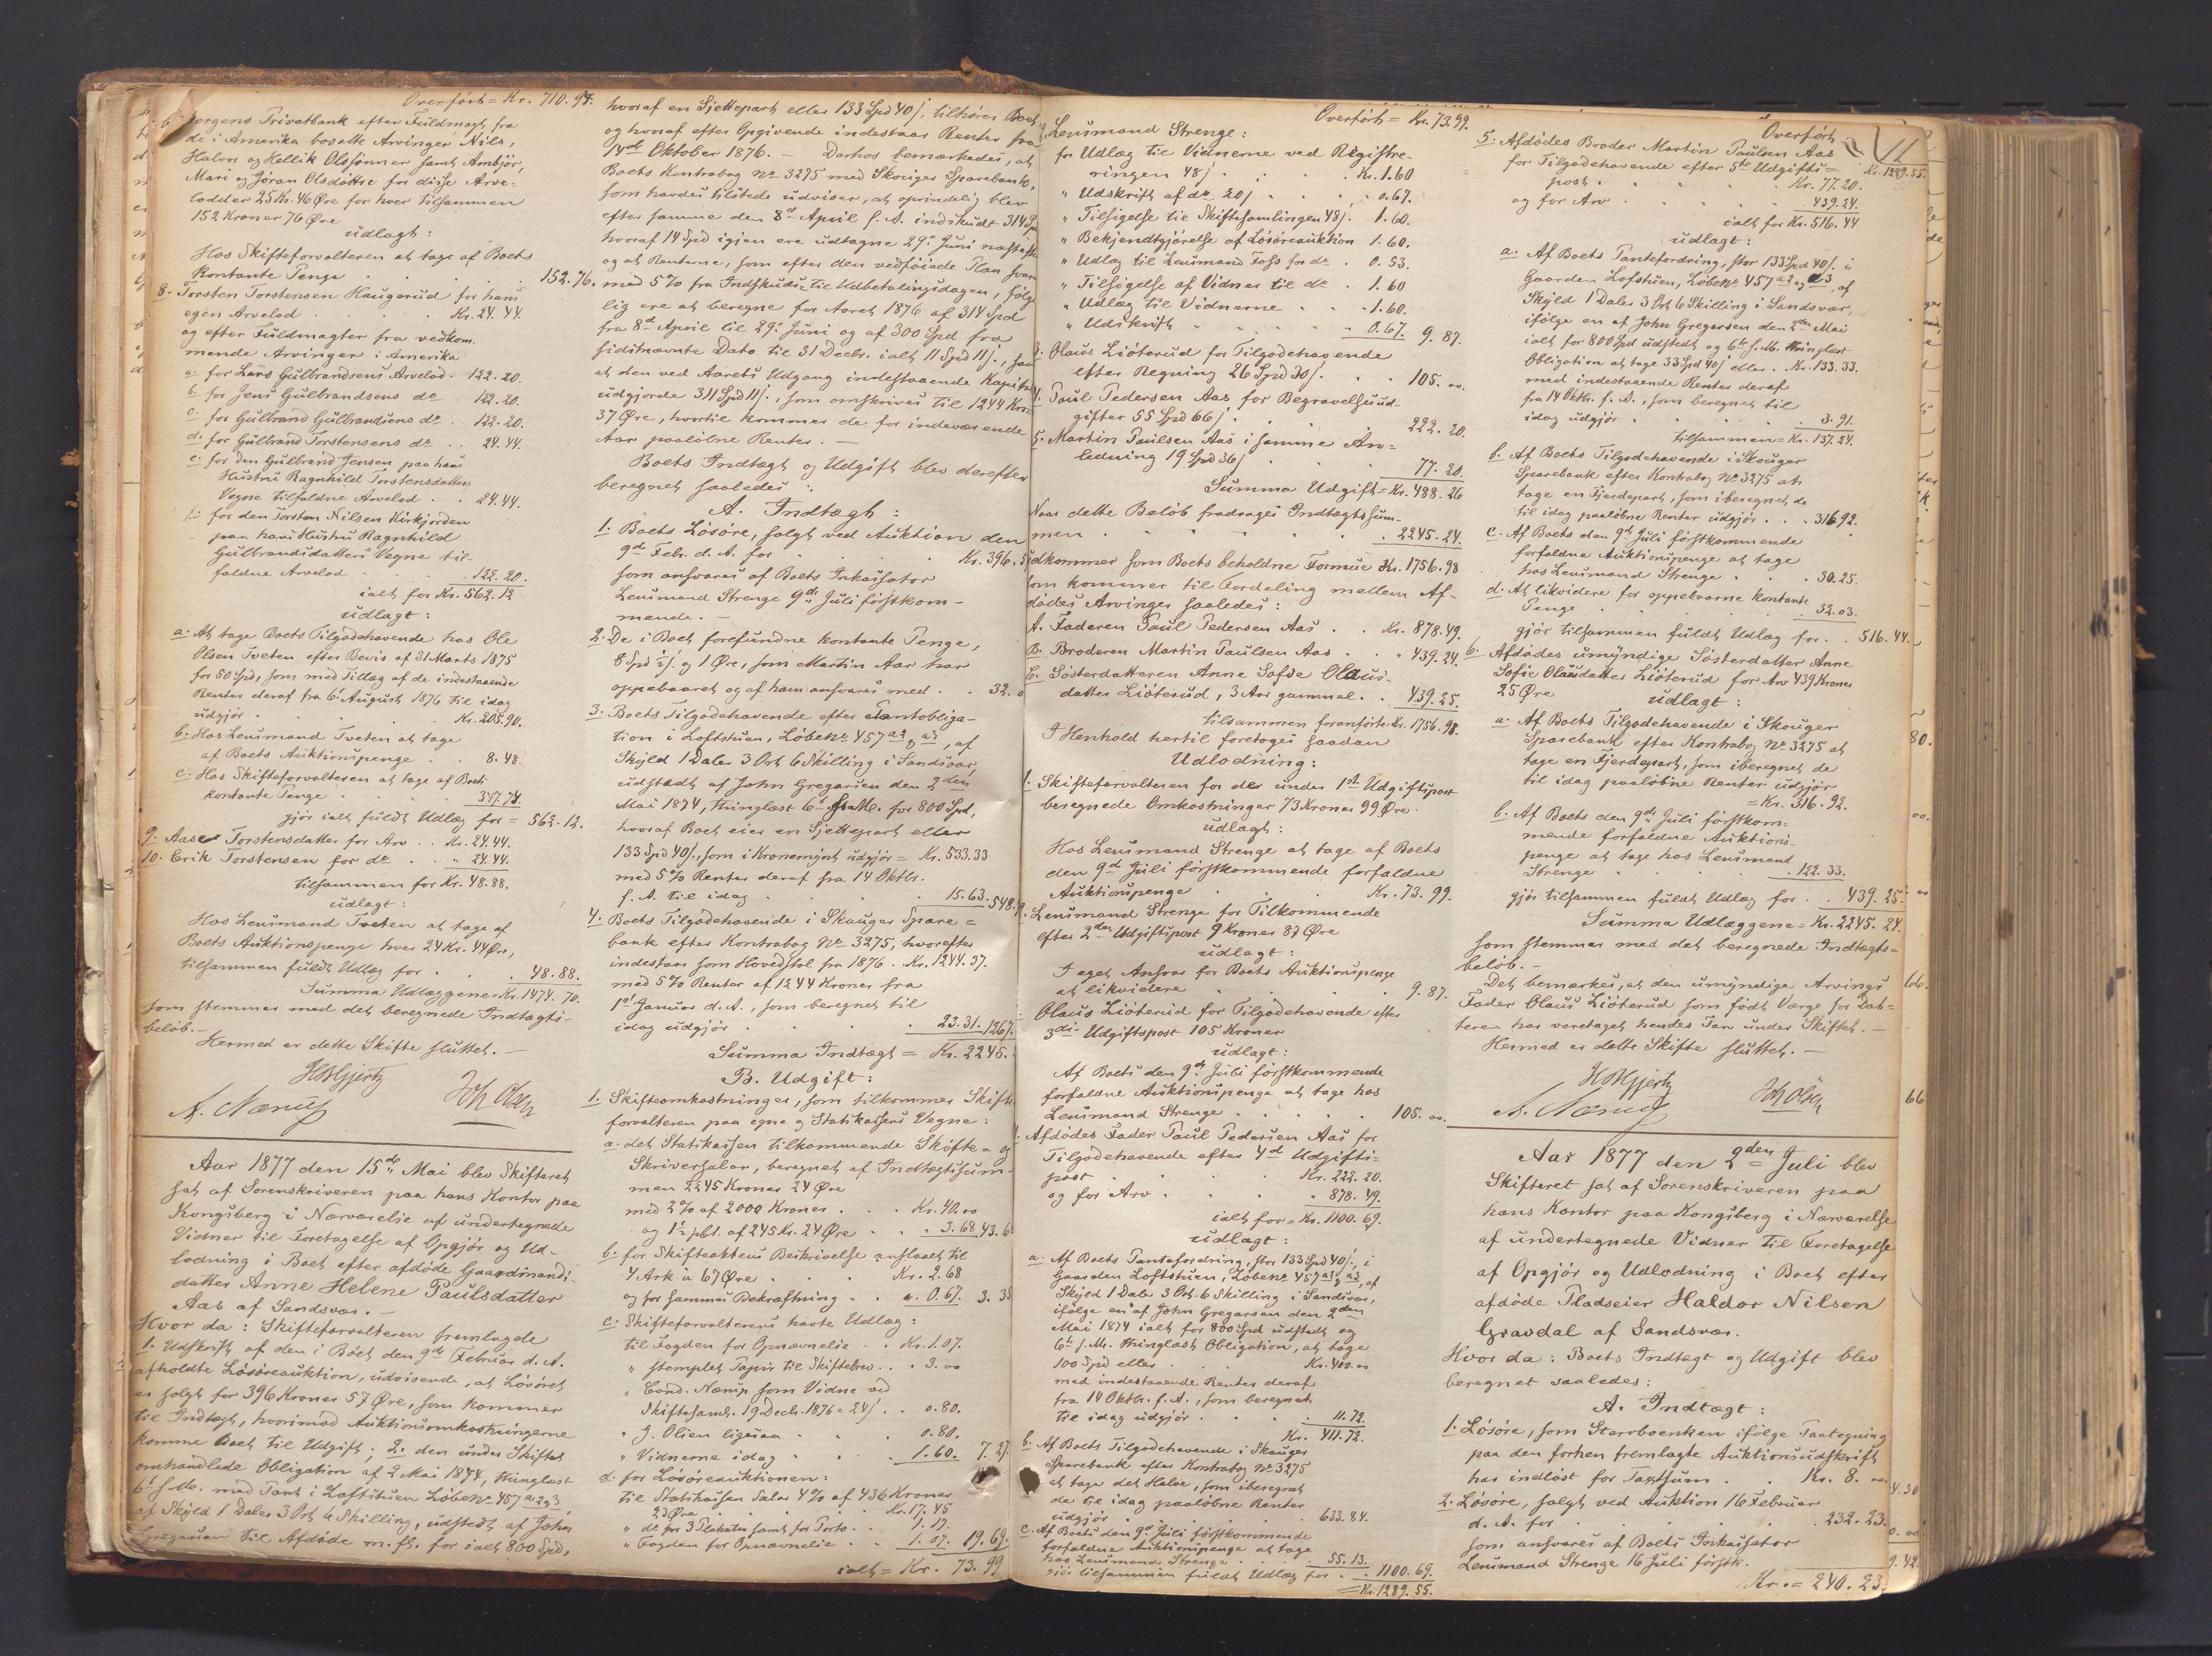 Overført = Kr. 710.94.
6. Jørgens Privatbank efter Fuldmagt fra
de i Amerika bosatte Arvinger Nils,
Halvor og Hellik Olssønner samt Ambjør,
Mari og Jøran Olsdøttre for disse Arve-
lodder 25 Kr. 46 Øre for hver tilsammen
152 Kroner 76 Øre
udlagt:
Hos Skifteforvalteren at tage af Boets
kontante Penge . . . . 152.76.
8. Torsten Torstensen Haugerud for hans
egen Arvelod . . . Kr. 24.44.
og efter Fuldmagter fra vedkom-
mende Arvinger i Amerika
a. for Lars Gulbrandsens Arvelod . 122.20.
b. for Jens Gulbrandsens do . 122.20.
c. for Gulbrand Gulbrandsens do . 122.20.
d. for Gulbrand Torstensens do . . 24.44.
e. for den Gulbrand Jensen paa hans
Hustru Ragnhild Torstensdatters
Vegne tilfaldne Arvelod . . 24.44.
f. for den Torsten Nilsen Kirkjorden
paa hans Hustru Ragnhild
Gulbrandsdatters Vegne til-
faldne Arvelod . . . 122.20.
ialt for Kr. 562.12
udlagt:
a. At tage Boets Tilgodehavende hos Ole
Olsen Tveten efter Bevis af 31 Marts 1875
for 50 Spd, som med Tillæg af de indestaaende
Renter deraf fra 6 August 1876 til idag
udgjør . . . Kr. 205.90.
b. Hos Lensmand Tveten at tage
af Boets Auktionspenge . . 8.48.
c. Hos Skifteforvalteren at tage af Boets
kontante Penge . . . 347.74.
gjør ialt fuldt Udlæg for = 562.12.
9. Aase Torstensdatter for Arv . . Kr. 24.44.
10. Erik Torstensen for do . . " 24.44.
tilsammen for Kr. 48.88.
udlagt:
Hos Lensmand Tveten at tage af
Boets Auktionspenge hver 24 Kr. 44 Øre,
tilsammen fuldt Udlæg for . . . 48.88.
Summa Udlæggene = Kr. 1474.70.
som stemmer med det beregnede Indtægts-
beløb. —
Hermed er dette Skifte sluttet. —
HBGjertz
A. Nærup Joh Olsen
Aar 1877 den 15de Mai blev Skifteret
sat af Sorenskriveren paa hans Kontor paa
Kongsberg i Nærværelse af undertegnede
Vidner til Foretagelse af Opgjør og Ud-
lodning i Boet efter afdøde Gaardmands-
datter Anne Helene Paulsdatter
Aas af Sandsvær. —
Hvor da: Skifteforvalteren fremlagde
1. Udskrift af den i Boet den 9de Februar d. A.
afholdte Løsøreauktion, udvisende, at Løsøret
er solgt for 396 Kroner 57 Øre, som kommer
til Indtægt, hvorimod Auktionsomkostningerne
komme Boet til Udgift; 2. den under Skiftet
omhandlede Obligation af 2 Mai 1874, thinglæst
6t s. M. med Pant i Loftstuen Løbeno 457 a2 og 3
af Skyld 1 Daler 3 Ort 6 Skilling, udstedt af John
Gregarsen til Afdøde m. fl. for ialt 800 Spd,
hvoraf en Sjettepart eller 133 Spd 40 s, tilhører Boet
og hvoraf efter Opgivende indestaar Renter fra
14de Oktober 1876. — Derhos bemærkedes, at
Boets Kontrabog No 3275 med Skouger Sparebank,
som havdes tilstede udviser, at oprindelig blev
efter samme den 8d April f. A. indskudt 314 Spd
hvoraf 14 Spd igjen ere udtagne 29. Juni næstefter
og at Renterne, som efter den vedføiede Plan svares
med 5% fra Indskuds- til Udbetalingsdagen, følge-
lig ere at beregne for Aaret 1876 af 314 Spd
fra 8d April til 29. Juni og af 300 Spd fra
sidstnævnte Dato til 31 Decbr. ialt 11 Spd 11 s., saa
at den ved Aarets Udgang indestaaende Kapital
udgjorde 311 Spd 11 s., som omskrives til 1244 Kroner
37 Øre, hvortil kommer de for indeværende
Aar paaløbne Renter. —
Boets Indtægt og Udgift blev derefter
beregnet saaledes:
A. Indtægt:
1. Boets Løsøre, solgt ved Auktion den
9d Febr. d. A. for . . . Kr. 396.5
som ansvares af Boets Inkassator
Lensmand Strenge 9de Juli førstkom-
mende. —
2. De i Boet forefundne kontante Penge,
8 Spd ½ s. og 1 Øre, som Martin Aas har
oppebaaret og af ham ansvares med . . 32.0
3. Boets Tilgodehavende efter Pantobliga-
tion i Loftstuen, Løbeno 457 a2 og a3, af
Skyld 1 Daler 3 Ort 6 Skilling i Sandsvær,
udstedt af John Gregarsen den 2den
Mai 1874, thinglæst 6t s. M. for 800 Spd,
hvoraf Boet eier en Sjettepart eller
133 Spd 40 s., som i Kronemynt udgjør = Kr. 533.33
med 5% Renter deraf fra 14 Oktbr.
f. A. til idag . . . 15.63. 548.
4. Boets Tilgodehavende i Skouger Spare-
bank efter Kontrabog No 3275, hvorefter
indestaar som Hovedstol fra 1876 . Kr. 1244.37.
med 5% Renter af 1244 Kroner fra
1st Januar d. A., som beregnet til
idag udgjør . . . 23.31. 1267.
Summa Indtægt = Kr. 2245.
B. Udgift:
1. Skifteomkostninger, som tilkommer Skifte-
forvalteren paa egne og Statskassens Vegne:
a. det Statskassen tilkommende Skifte- og
Skriversalær, beregnet af Indtægtssum-
men 2245 Kroner 24 Øre
med 2% af 2000 Kroner . . . Kr. 40.00
og 1½ pCt. af 245 Kr. 24 Øre . . " 3.68 43.6
b. for Skifteaktens Beskrivelse anslaaet til
4 Ark à 67 Øre . . . Kr. 2.68
og for sammes Bekræftning . . " 0.67. 3.35
c. Skifteforvalterens havte Udlæg:
til Fogden for Opnævnelse . . Kr. 1.07.
" stemplet Papir til Skiftebrev . . " 3.00
" Cand. Nærup som Vidne ved
Skiftesaml. 19 Decb. 1876 = 24 s . . 0.80.
" J. Olsen ligesaa . . . 0.80.
" Vidnerne idag . . . 1.60. 7.27
d. for Løsøreauktionen:
til Statskassen Salær 4% af 436 Kroner
23 Øre . . . Kr. 17.45
" do for 3 Plakater samt for Porto . . 1.17.
" Fogden for Opnævnelse . . 1.07. 19.69.
ialt = Kr. 73.99
Overført = Kr. 73.99.
2. Lensmand Strenge:
for Udlæg til Vidnerne ved Registre-
ringen 48 s . . . Kr. 1.60
" Udskrift af do 20 s . . . " 0.67.
" Tilsigelse til Skiftesamlingen 48 s. 1.60.
" Bekjendtgjørelse af Løsøreauktion 1.60.
" Udlæg til Lensmand Foss for do . 0.53.
" Tilsigelse af Vidner til do . 1.60
" Udlæg til Vidnerne . . . 1.60.
" Udskrift . . . 0.67. 9.87.
3. Olaus Liøterud for Tilgodehavende
efter Regning 26 Spd 30 s. . . . 105.00.
4. Paul Pedersen Aas for Begravelsesud-
gifter 55 Spd 66 s. . . . 222.20.
5. Martin Paulsen Aas i samme An-
ledning 19 Spd 36 s . . . 77.20.
Summa Udgift = Kr. 488.26
Naar dette Beløb fradrages Indtægtssum-
men . . . 2245.24.
udkommer som Boets beholdne Formue Kr. 1756.98
som kommer til Fordeling mellem Af-
dødes Arvinger saaledes:
A. Faderen Paul Pedersen Aas . . Kr. 878.49.
B. Broderen Martin Paulsen Aas . . " 439.24.
C. Søsterdatteren Anne Sofie Olaus-
datter Liøterud, 3 Aar gammel . . 439.25.
tilsammen foranførte Kr. 1756.98.
I Henhold hertil foretoges saadan
Udlodning:
1. Skifteforvalteren for der under 1st Udgiftspost
beregnede Omkostninger 73 Kroner 99 Øre.
udlagt:
Hos Lensmand Strenge at tage af Boets
den 9d Juli førstkommende forfaldne
Auktionspenge . . . Kr. 73.99.
2. Lensmand Strenge for Tilkommende
efter 2den Udgiftspost 9 Kroner 87 Øre
udlagt:
I eget Ansvar for Boets Auktionspenge
at likvidere . . . 9.87.
Olaus Liøterud for Tilgodehavende efter
3die Udgiftspost 105 Kroner
udlagt:
Af Boets den 9de Juli førstkommende
forfaldne Auktionspenge at tage hos
Lensmand Strenge . . . 105.00.
4. Afdødes Fader Paul Pedersen Aas for
Tilgodehavende efter 4d Udgifts-
post . . . Kr. 222.20.
og for Arv . . . " 878.49.
ialt for = Kr. 1100.69.
udlagt:
a. Af Boets Pantefordring, stor 133 Spd 40 s., i
Gaarden Loftstuen, Løbeno 457 a2 og a3, af
Skyld 1 Daler 3 Ort 6 Skilling i Sandsvær,
ifølge en af John Gregarsen den 2den
Mai 1874 ialt for 800 Spd udstedt og
6te s. M. thinglæst Obligation, at tage
100 Spd eller . . . Kr. 400.00
med indestaaende Renter deraf
fra 14 Oktbr. f. A., som beregnet
til idag udgjør . . . 11.72.
Kr. 411.72.
b. Af Boets Tilgodehavende i Skouger
Sparebank efter Kontrabog No 3275
at tage det Halve, som iberegnet
de til idag paaløbne Renter
udgjør . . . 633.84.
c. Af Boets den 9d Juli førstkommende
forfaldne Auktionspenge at tage
hos Lensmand Strenge . . . 55.13.
gjør tilsammen fuldt Udlæg for . . 1100.69.
= Kr. 1289.55.
11
Overført
Kr. 1289.55.
5. Afdødes Broder Martin Paulsen Aas
for Tilgodehavende efter 5te Udgifts-
post . . . Kr. 77.20.
og for Arv . . . 439.24.
ialt for Kr. 516.44
udlagt:
a. Af Boets Pantefordring, stor 133 Spd 40 s. i
Gaarden Lofstuen, Løbeno 457 a2 og a3, af
Skyld 1 Daler 3 Ort 6 Skilling i Sandsvær,
ifølge en af John Gregarsen den 2den Mai
ialt for 800 Spd udstedt og 6te s. M. thinglæst
Obligation at tage 33 Spd 40 s eller . Kr. 133.33.
med indestaaende Renter deraf
fra 14 Oktbr. f. A., som beregnet til
idag udgjør . . . 3.91.
tilsammen = Kr. 137.24.
b. Af Boets Tilgodehavende i Skouger
Sparebank efter Kontrabog No 3275 at
tage en Fjerdepart, som iberegnet de
til idag paaløbne Renter udgjør . . . 316.92.
c. Af Boets den 9d Juli førstkommende
forfaldne Auktionspenge at tage
hos Lensmand Strenge . . . 30.25.
d. At likvidere for oppebaarne kontante
Penge . . . 32.03.
gjør tilsammen fuldt Udlæg for . . 516.44.
6. Afdødes umyndige Søsterdatter Anne
Sofie Olausdatter Liøterud for Arv 439 Kroner
25 Øre
udlagt:
a. Af Boets Tilgodehavende i Skouger
Sparebank efter Kontrabog No 3275 at
tage en Fjerdepart, som iberegnet de
til idag paaløbne Renter udgjør
= Kr. 316.92.
b. Af Boets den 9de Juli førstkom-
mende forfaldne Auktions-
penge at tage hos Lensmand
Strenge . . . 122.33.
gjør tilsammen fuldt Udlæg for . . 439.25.
Summa Udlæggene = Kr. 2245.24.
som stemmer med det beregnede Indtægts-
beløb. —
Det bemærkes, at den umyndige Arvings
Fader Olaus Liøterud som født Værge for Dat-
teren har varetaget hendes Tarv under Skiftet. —
Hermed er dette Skifte sluttet. —
HBGjertz
A. Nærup Joh Olsen
Aar 1877 den 2den Juli blev
Skifteret sat af Sorenskriveren paa
hans Kontor paa Kongsberg i Nærværelse
af undertegnede Vidner til Foretagelse
af Opgjør og Udlodning i Boet efter
afdøde Pladseier Haldor Nilsen
Gravdal af Sandsvær.
Hvor da: Boets Indtægt og Udgift blev
beregnet saaledes:
A. Indtægt:
1. Løsøre, som Stervboenken ifølge Paategning
paa den forhen fremlagte Auktionsudskrift
har indløst for Taxtsum . . Kr. 8.00.
2. Løsøre, solgt ved Auktion 16 Februar
d. A. for . . . 232.23.
som ansvares af Boets Inkassator
Lensmand Strenge 16 Juli førstk.
Kr. = 240.23.